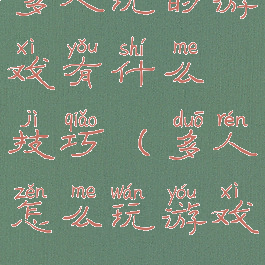 多人玩的游
xì yǒu shí me
戏有什么
jì qiǎo duō rén
技巧（多人
zěn me wán yóu xì
怎么玩游戏